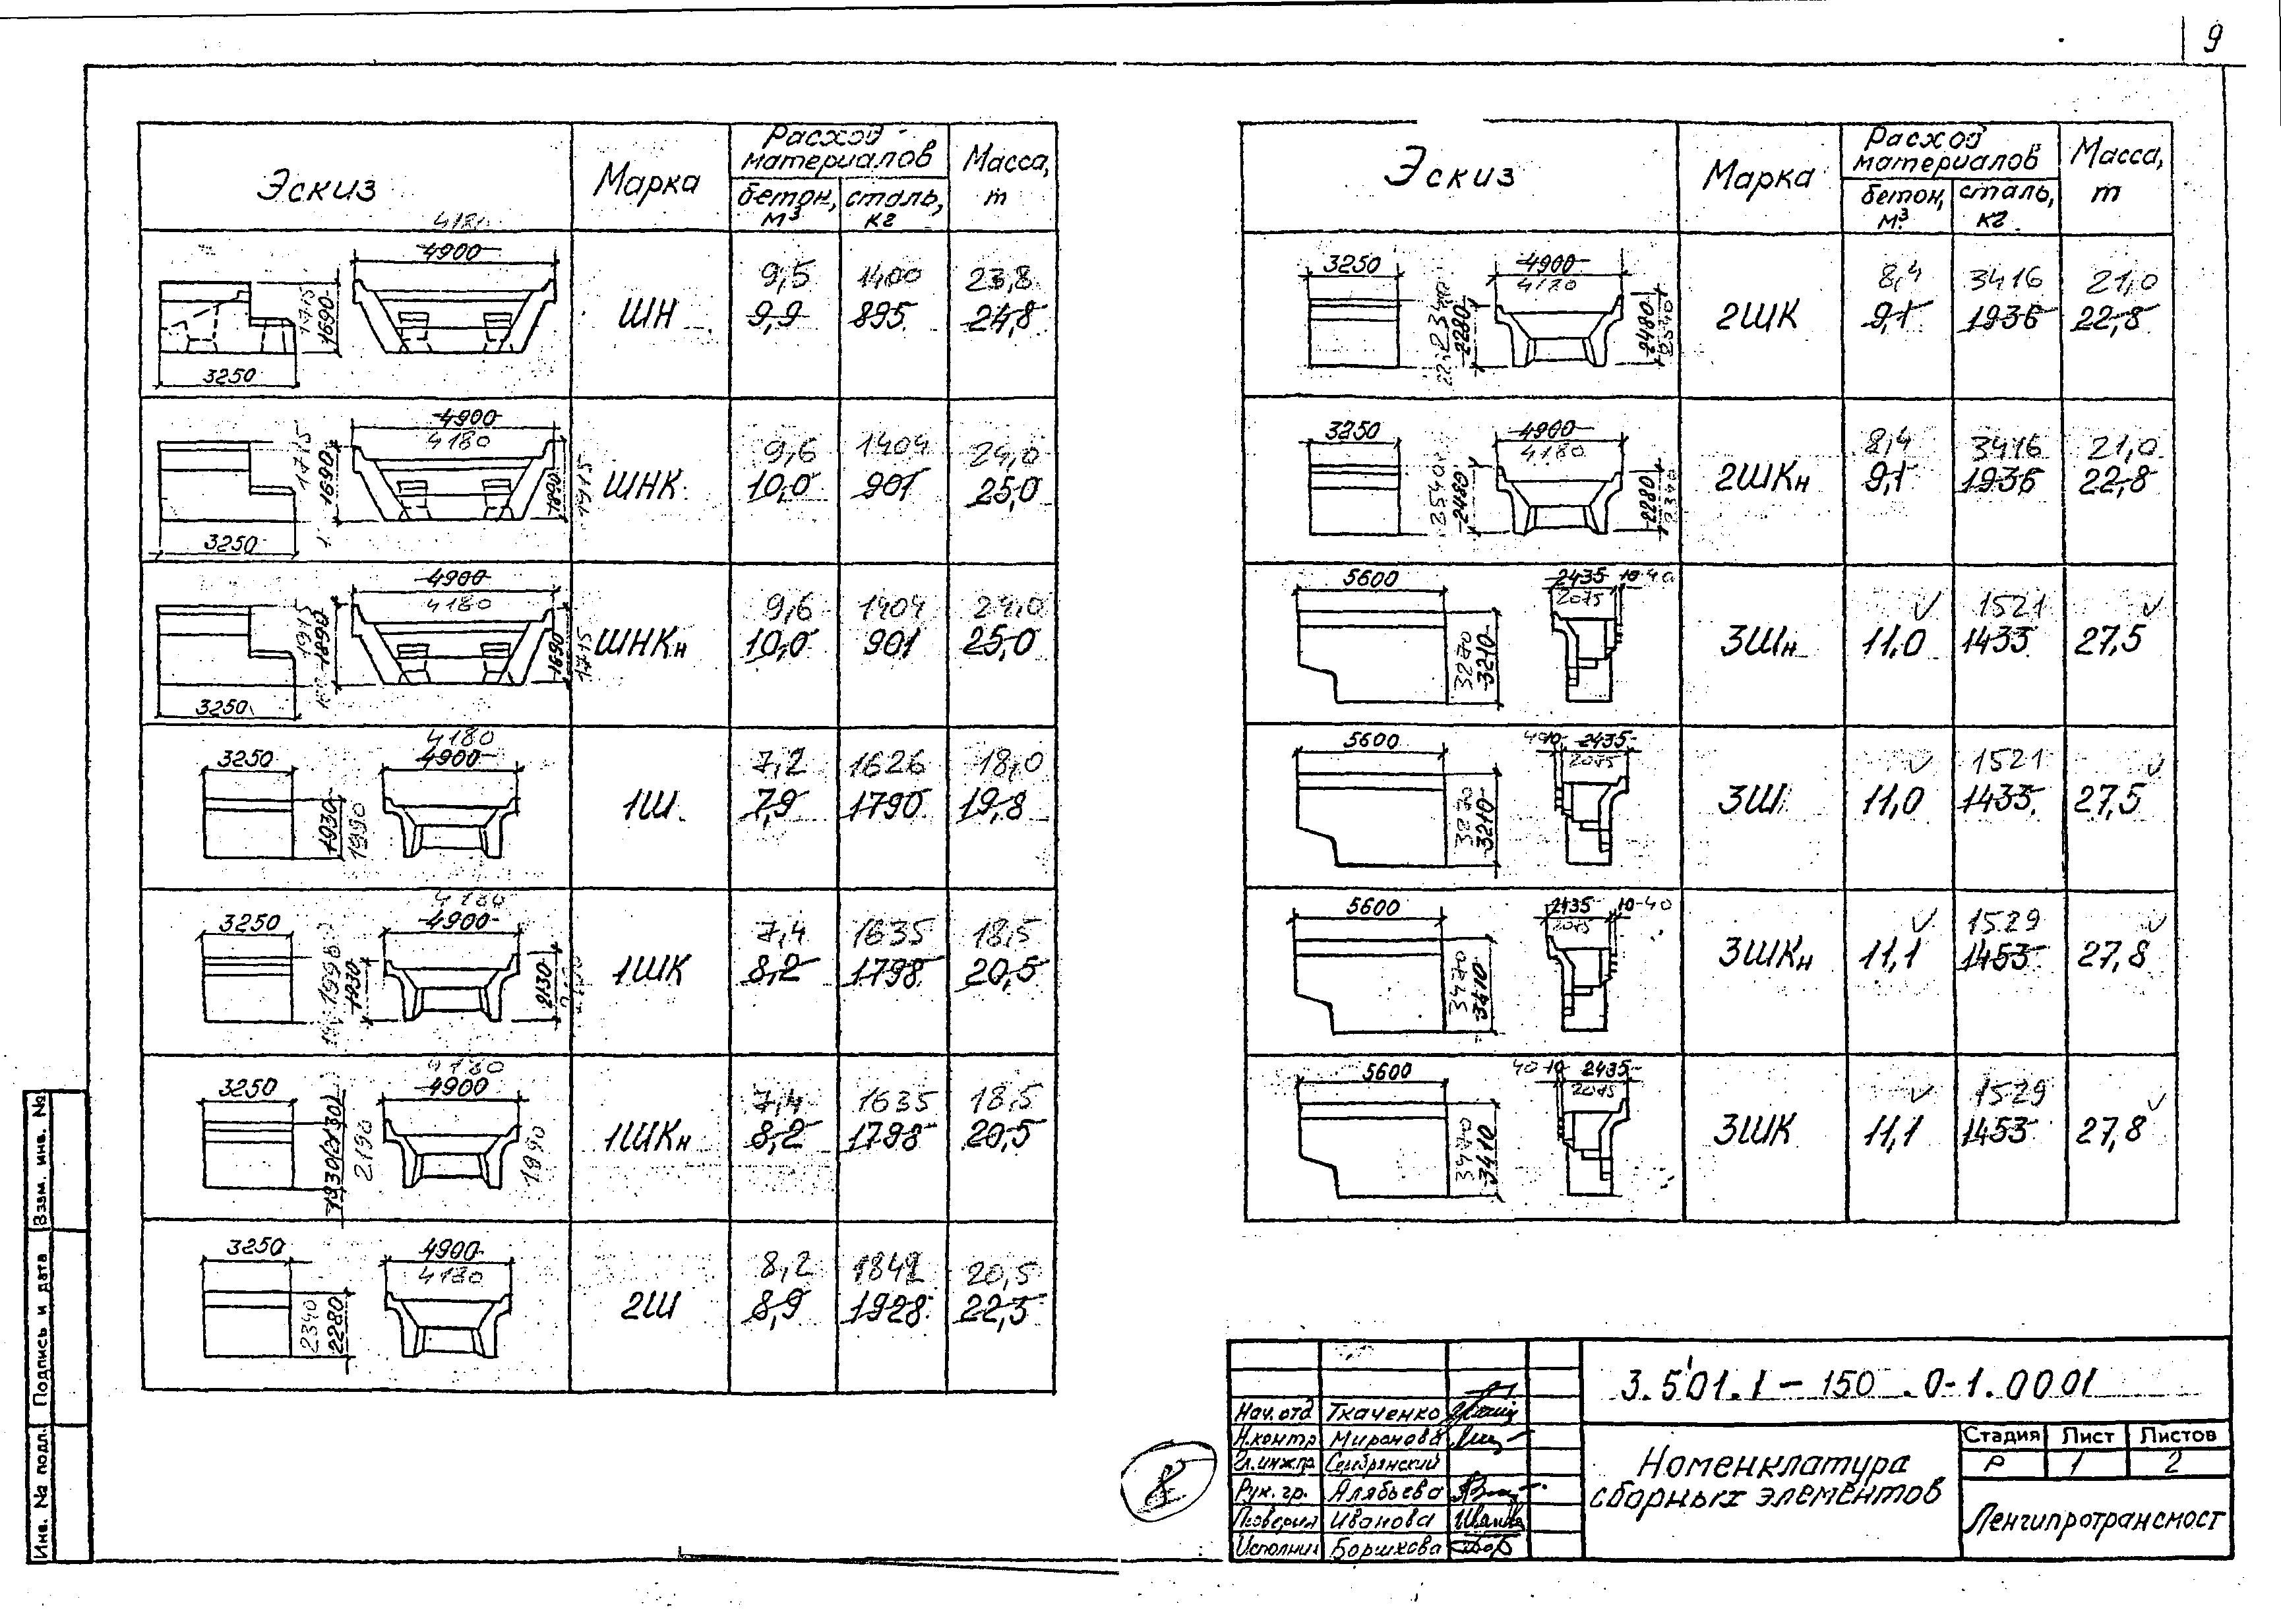 9
Эскиз Марка Расход материалов Масса, т
бетон, м³ сталь, кг
4180
4900
1715
1690
3250
ШН
9,5 1400 23,8
9,9 895 24,8
4900
4180
1715
1690
1890
1915
3250
ШНК
9,6 1404 24,0
10,0 901 25,0
4900
4180
1915
1890
1690
1715
3250
ШНКн
9,6 1404 24,0
10,0 901 25,0
4180
3250 4900
1930
1990
1Ш
7,2 1626 18,0
7,9 1790 19,8
4180
3250 4900
1990
1930
2130
1ШК
7,4 1635 18,5
8,2 1798 20,5
4180
3250 4900
1930(2130)
2190
1990
1ШКн
7,4 1635 18,5
8,2 1798 20,5
3250 4900
4180
2340
2280
2Ш
8,2 1842 20,5
8,9 1928 22,3
Эскиз Марка Расход материалов Масса, т
бетон, м³ сталь, кг
3250 4900
4180
2340
2280
2480
2540
2ШК
8,4 3416 21,0
9,1 1936 22,8
3250 4900
4180
2540
2480
2280
2340
2ШКн
8,4 3416 21,0
9,1 1936 22,8
5600 2435 10 40
2075
3270
3210
3Шн
1521
11,0 1433 27,5
5600 40 10 2435
2075
3270
3210
3Ш
1521
11,0 1433 27,5
5600 2435 10 40
2075
3470
3410
3ШКн
1529
11,1 1453 27,8
5600 40 10 2435
2075
3470
3410
3ШК
1529
11,1 1453 27,8
3.501.1-150.0-1.0001
Нач. отд Ткаченко
Н.контр Миронова
Гл.инж.пр. Серебрянский
Рук. гр. Алябьева
Проверил Иванова
Исполнил Боршхова
Номенклатура
сборных элементов
Стадия Лист Листов
Р 1 2
Ленгипротрансмост
8
Взам. инв. №
Подпись и дата
Инв. № подл.